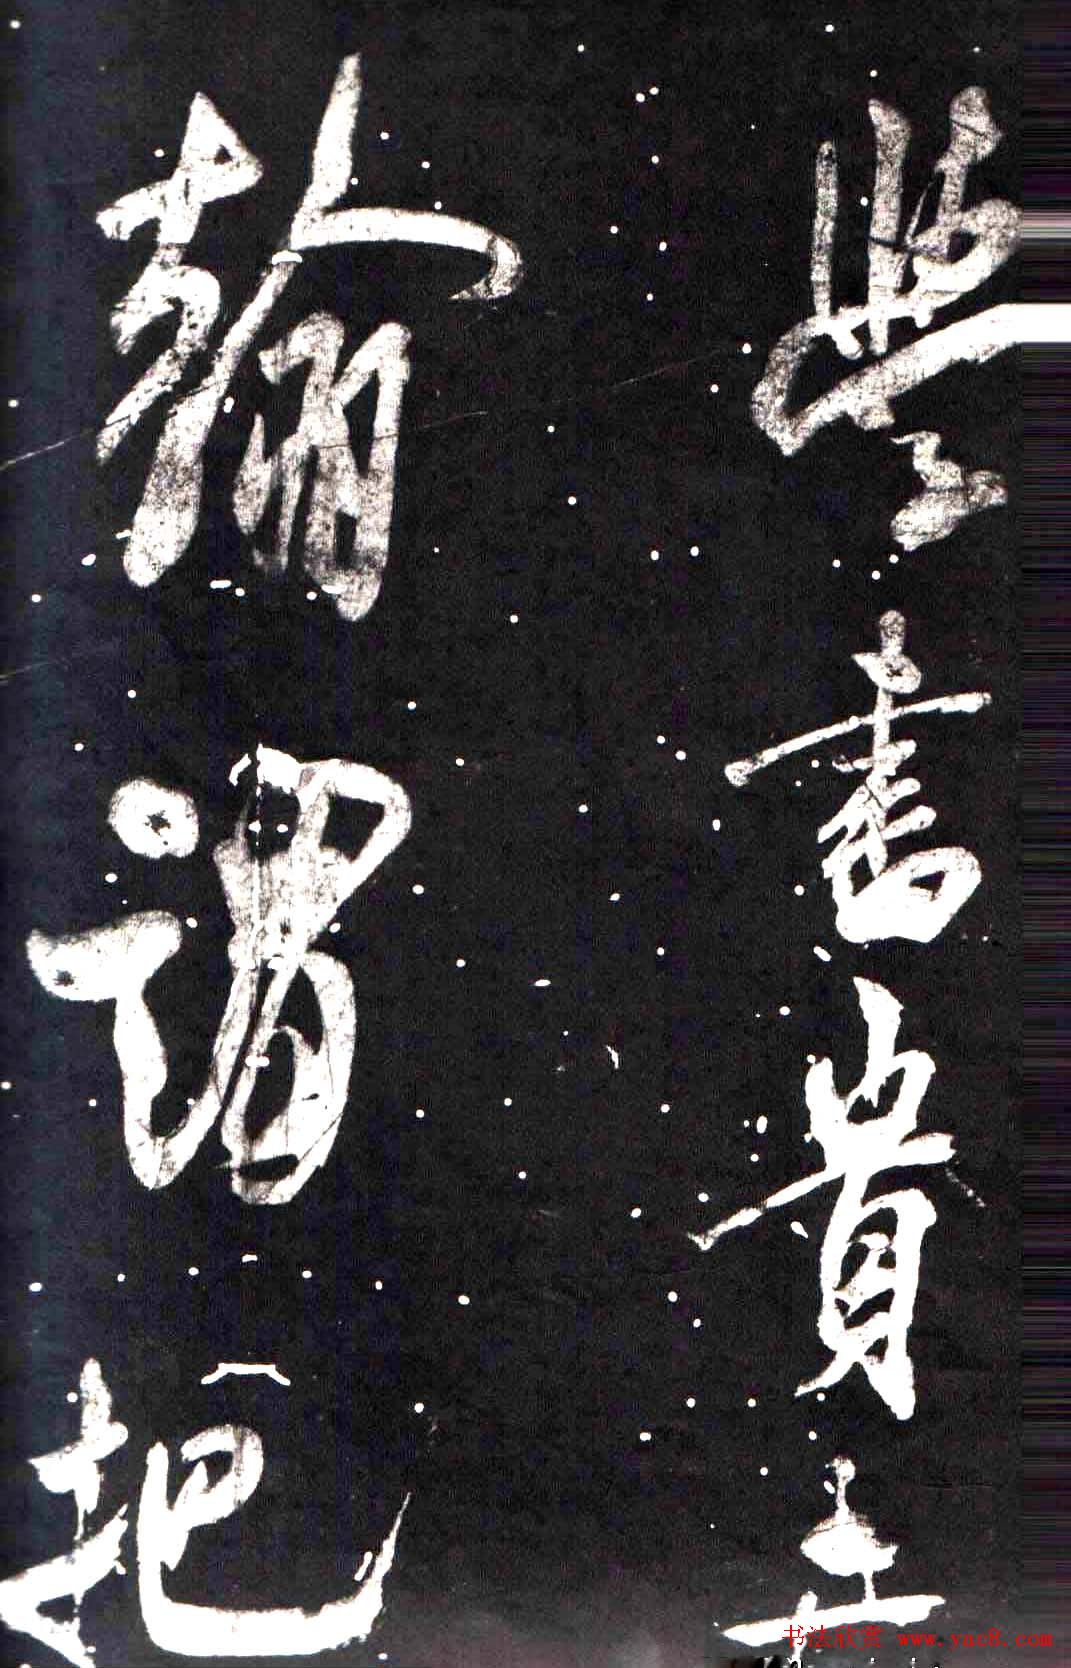 學書貴弄
翰謂把
书法欣赏 www.yac8.com